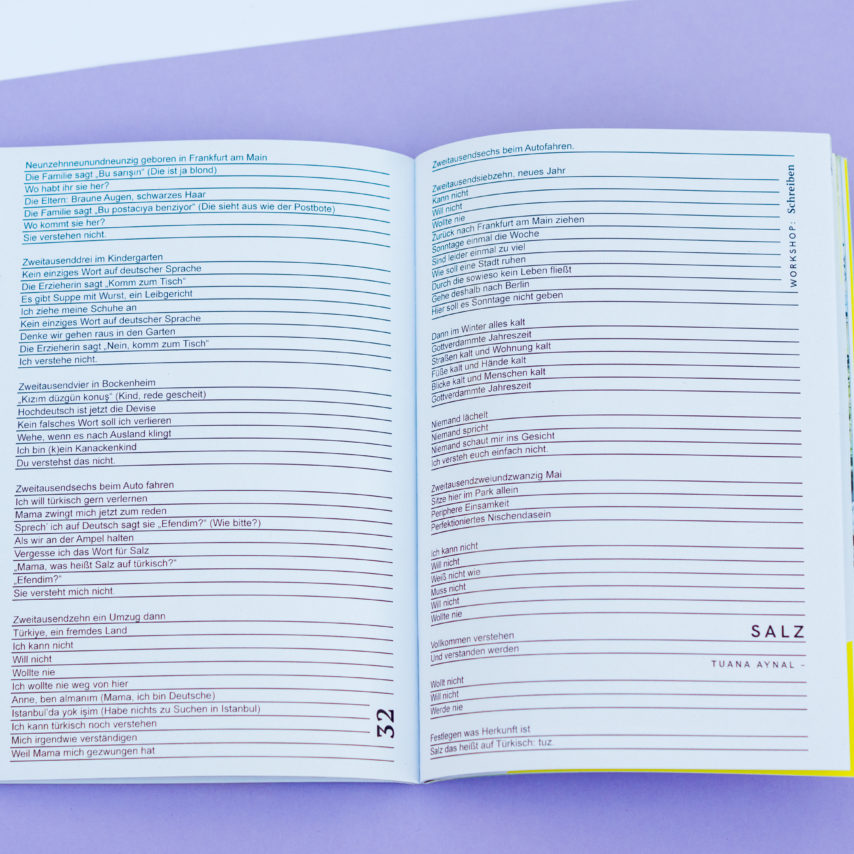 Neunzehnneunundneunzig geboren in Frankfurt am Main
Die Familie sagt „Bu sarışın“ (Die ist ja blond)
Wo habt ihr sie her?
Die Eltern: Braune Augen, schwarzes Haar
Die Familie sagt „Bu postacıya benziyor“ (Die sieht aus wie der Postbote)
Wo kommt sie her?
Sie verstehen nicht.
Zweitausenddrei im Kindergarten
Kein einziges Wort auf deutscher Sprache
Die Erzieherin sagt „Komm zum Tisch“
Es gibt Suppe mit Wurst, ein Leibgericht
Ich ziehe meine Schuhe an
Kein einziges Wort auf deutscher Sprache
Denke wir gehen raus in den Garten
Die Erzieherin sagt „Nein, komm zum Tisch“
Ich verstehe nicht.
Zweitausendvier in Bockenheim
„Kızım düzgün konuş“ (Kind, rede gescheit)
Hochdeutsch ist jetzt die Devise
Kein falsches Wort soll ich verlieren
Wehe, wenn es nach Ausland klingt
Ich bin (k)ein Kanackenkind
Du verstehst das nicht.
Zweitausendsechs beim Auto fahren
Ich will türkisch gern verlernen
Mama zwingt mich jetzt zum reden
Sprech’ ich auf Deutsch sagt sie „Efendim?“ (Wie bitte?)
Als wir an der Ampel halten
Vergesse ich das Wort für Salz
„Mama, was heißt Salz auf türkisch?“
„Efendim?“
Sie versteht mich nicht.
Zweitausendzehn ein Umzug dann
Türkiye, ein fremdes Land
Ich kann nicht
Will nicht
Wollte nie
Ich wollte nie weg von hier
Anne, ben almanım (Mama, ich bin Deutsche)
İstanbul’da yok işim (Habe nichts zu Suchen in Istanbul)
Ich kann türkisch noch verstehen
Mich irgendwie verständigen
Weil Mama mich gezwungen hat
32
Zweitausendsechs beim Autofahren.
Zweitausendsiebzehn, neues Jahr
Kann nicht
Will nicht
Wollte nie
Zurück nach Frankfurt am Main ziehen
Sonntage einmal die Woche
Sind leider einmal zu viel
Wie soll eine Stadt ruhen
Durch die sowieso kein Leben fließt
Gehe deshalb nach Berlin
Hier soll es Sonntage nicht geben
Dann im Winter alles kalt
Gottverdammte Jahreszeit
Straßen kalt und Wohnung kalt
Füße kalt und Hände kalt
Blicke kalt und Menschen kalt
Gottverdammte Jahreszeit
Niemand lächelt
Niemand spricht
Niemand schaut mir ins Gesicht
Ich versteh euch einfach nicht.
Zweitausendzweiundzwanzig Mai
Sitze hier im Park allein
Periphere Einsamkeit
Perfektioniertes Nischendasein
Ich kann nicht
Will nicht
Weiß nicht wie
Muss nicht
Will nicht
Wollte nie
Vollkommen verstehen
Und verstanden werden
Wollt nicht
Will nicht
Werde nie
Festlegen was Herkunft ist
Salz das heißt auf Türkisch: tuz.
WORKSHOP: Schreiben
SALZ
TUANA AYNAL –